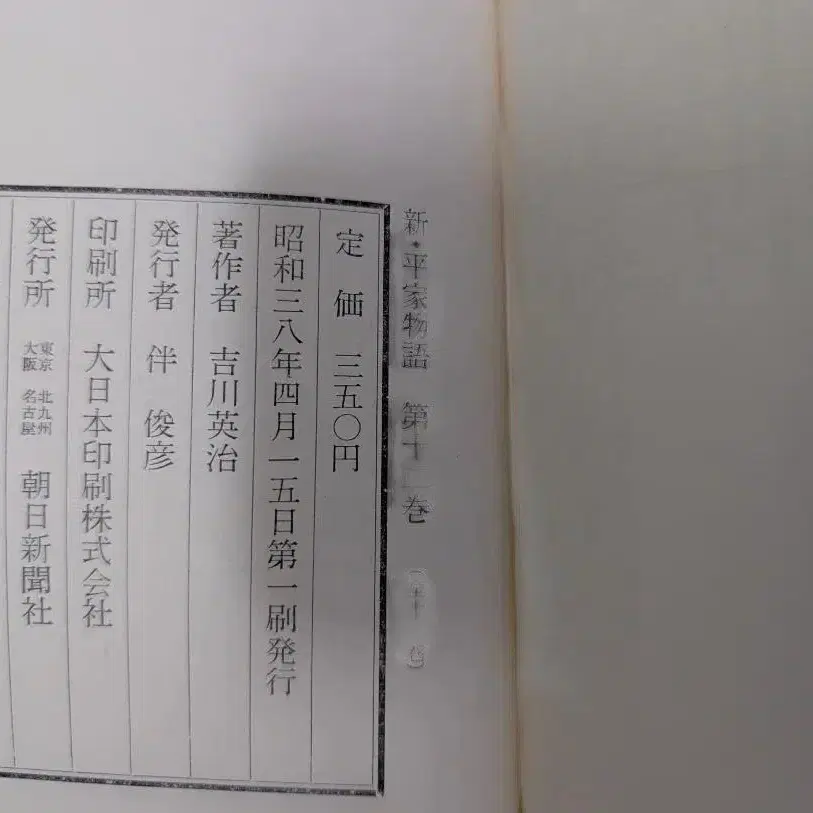 新・平家物語 第十 巻
定価 三五〇円
昭和三八年四月一五日第一刷発行
著作者 吉川英治
発行者 伴俊彦
印刷所 大日本印刷株式会社
発行所 東京 北九州 大阪 名古屋 朝日新聞社